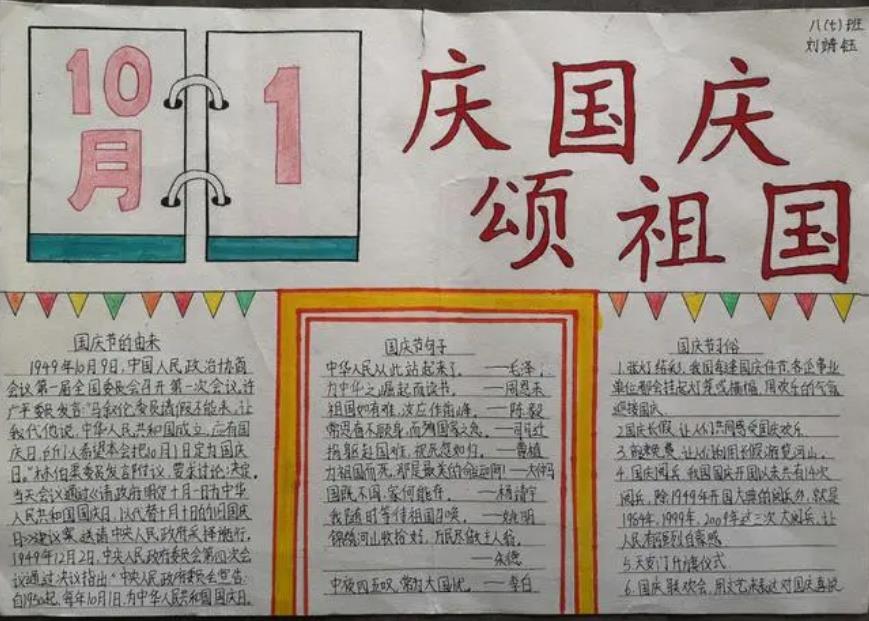 八(七)班
刘靖钰
10月
1
庆国庆
颂祖国
国庆节的由来
1949年10月9日,中国人民政治协商
会议第一届全国委员会召开第一次会议,许
广平委员发言:"马叙伦委员请假不能来,让
我代他说,中华人民共和国成立,应有国
庆日,所以我们希望本会把10月1日定为国庆
日。"林伯渠委员发言附议,要求讨论决定,
当天会议通过《请政府明定十月一日为中华
人民共和国国庆日,以代替十月十日的旧国庆
日》建议案,送请中央人民政府采择施行。
1949年12月2日,中央人民政府委员会第四次会
议通过决议指出"中央人民政府委员会宣告:
自1950起,每年10月1日,为中华人民共和国国庆日。
国庆节句子
中华人民从此站起来了。——毛泽
为中华之崛起而读书。——周恩来
祖国如有难,汝应作前锋。——陈毅
常思奋不顾身,而殉国家之急。——司马迁
捐躯赴国难,视死忽如归。——曹植
为祖国而死,那是最美的命运啊!——大仲马
国既不国,家何能存。——杨靖宇
我随时等待祖国召唤。——姚明
锦绣河山收拾好,万民尽做主人翁。
——朱德
中夜四五叹,常为大国忧。——李白
国庆节习俗
1.张灯结彩,我国每逢国庆佳节,各企事业
单位都会挂起灯笼或横幅,用欢乐的气氛
迎接国庆.
2.国庆长假,让人们共同感受国庆欢乐.
3.高速免费,让人们利用长假游览河山。
4.国庆阅兵,我国国庆开国以来共有14次
阅兵,除1949年开国大典的阅兵外,就是
1984年,1999年,2009年这三次大阅兵,让
人民感到自豪感.
5.天安门升旗仪式.
6.国庆联欢会,用文艺来表达对国庆喜悦